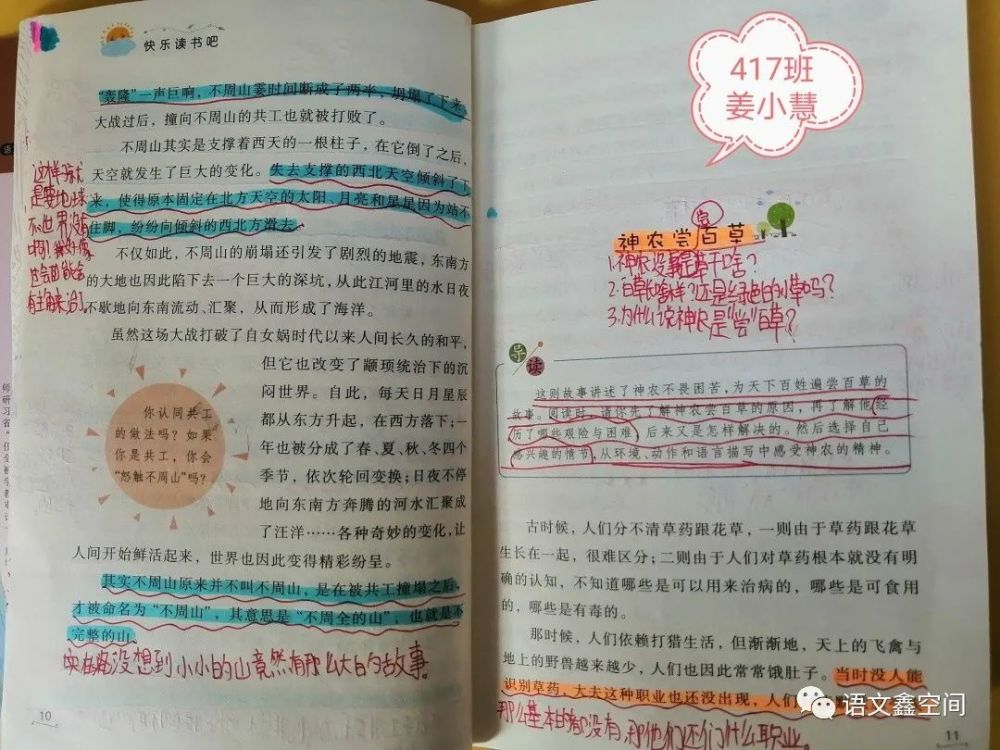 快乐读书吧
“轰隆”一声巨响，不周山霎时间断成了两半，坍塌了下来。
大战过后，撞向不周山的共工也就被打败了。
不周山其实是支撑着西天的一根柱子，在它倒了之后，
天空就发生了巨大的变化。失去支撑的西北天空倾斜了下
来，使得原本固定在北方天空的太阳、月亮和星星因为站不
住脚，纷纷向倾斜的西北方滑去。
不仅如此，不周山的崩塌还引发了剧烈的地震，东南方
的大地也因此陷下去一个巨大的深坑，从此江河里的水日夜
不歇地向东南流动、汇聚，从而形成了海洋。
虽然这场大战打破了自女娲时代以来人间长久的和平，
但它也改变了颛顼统治下的沉
闷世界。自此，每天日月星辰
都从东方升起，在西方落下；一
年也被分成了春、夏、秋、冬四个
季节，依次轮回变换；日夜不停
地向东南方奔腾的河水汇聚成
了汪洋……各种奇妙的变化，让
人间开始鲜活起来，世界也因此变得精彩纷呈。
你认同共工
的做法吗？如果
你是共工，你会
“怒触不周山”吗？
其实不周山原来并不叫不周山，是在被共工撞塌之后，
才被命名为“不周山”，其意思是“不周全的山”，也就是不
完整的山。
没想到小小的山竟然有那么大的故事。
10
417班
姜小慧
神农尝百草
1.神农没事
2.百草
还是绿色的小草吗？
3.为什么说神农是“尝”百草？
导读
这则故事讲述了神农不畏困苦，为天下百姓遍尝百草的
故事。阅读时，请你先了解神农尝百草的原因，再了解他经
历了哪些艰险与困难，后来又是怎样解决的。然后选择自己
感兴趣的情节，从环境、动作和语言描写中感受神农的精神。
古时候，人们分不清草药跟花草，一则由于草药跟花草
生长在一起，很难区分；二则由于人们对草药根本就没有明
确的认知，不知道哪些是可以用来治病的，哪些是可食用
的，哪些是有毒的。
那时候，人们依赖打猎生活，但渐渐地，天上的飞禽与
地上的野兽越来越少，人们也因此常常饿肚子。当时没人能
识别草药，大夫这种职业也还没出现，人们
那么基本的都没有，那他们还们什么职业。
语文鑫空间
11